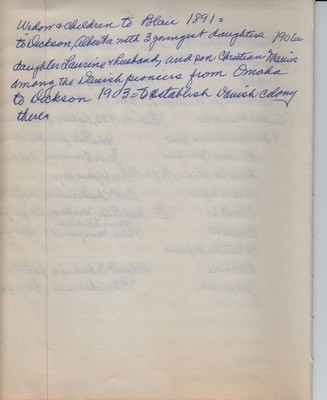 Widow & children to Blair 1891 =
to Dickson, Alberta with 3 youngest daughters 1906 =
daughter Laurine & husband, and son Christian Marius
among the Danish pioneers from Omaha
to Dickson 1903 = to establish Danish colony
there